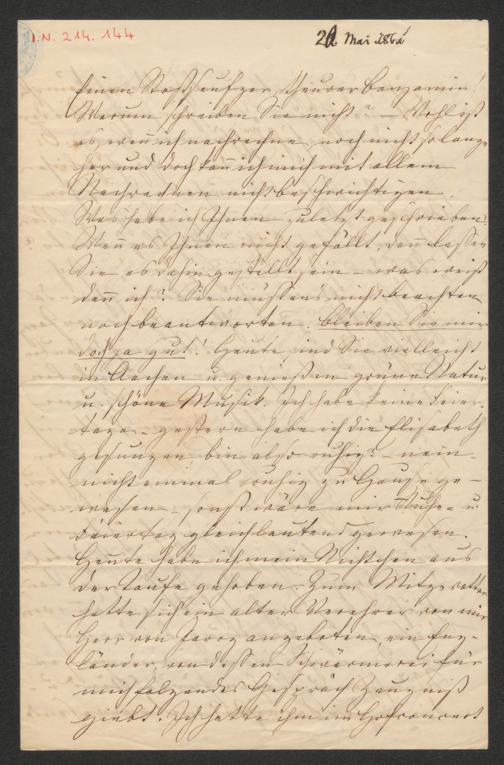 I.N. 214.144
Mai 186
Einen Stoßseufzer, theurer Benjamin!
Warum schreiben Sie nicht? – Wohl ist
es, wenn ich nachrechne, noch nicht so lange
her und doch kann ich mich mit allem
Nachrechnen nicht beschwichtigen.
Was habe ich Ihnen zuletzt geschrieben?
Wenn es Ihnen nicht gefällt, denn lassen
Sie es dahin gestellt sein – was weiß
denn ich? Sie müssens nicht beachten
noch beantworten, bleiben Sie mir
doch ja gut! Heute sind Sie vielleicht
in Aachen u. genießen grüne Natur
u. schöne Musik. Ich habe keine Feier-
tage – gestern habe ich die Elisabeth
gesungen, bin also ruhig? – nein
nicht einmal ruhig zu Hause ge-
wesen – sonst wäre mir Ruhe- u.
Feiertag gleichlautend gewesen.
Heute habe ich mein Nichtchen aus
der Taufe gehoben. Zum Mitgevatter
hatte sich ein alter Verehrer von mir
Herr von angeboten, ein Eng-
länder, von dessen Schwärmerei für
mich folgendes Gespräch Zeugniß
giebt. Ich hatte ihm im Hofconcert